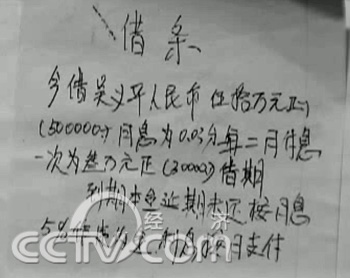 借条
今借吴义平人民币伍拾万元正
(500000) 月息为0.03分每二月付息
一次为叁万元正 (30000) 借期
到期本 近期未还按月息
5% 为 利息按月支付
经济
CCTV.com